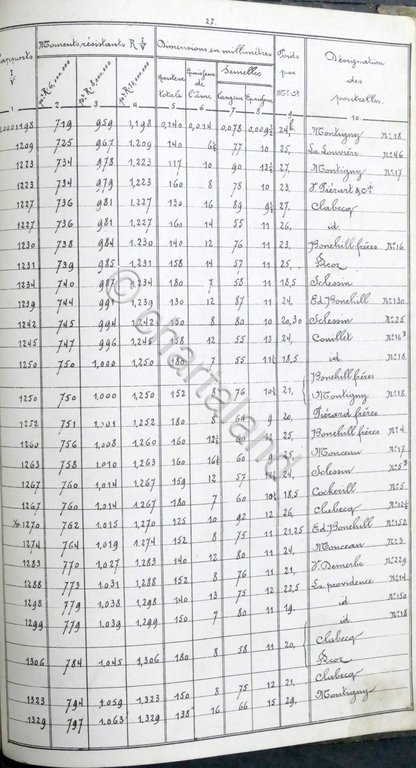 27.
Rapports I/V Moments résistants R I/V Dimensions en millimètres Poids par Mt Ct Désignation des poutrelles.
pr R 6.000.000 pr R 8.000.000 pr R 10.000.000 Hauteur totale Epaisseur de l'âme Semelles largeur Epaisseur
1 2 3 4 5 6 7 8 9 10
0,0001198 719 959 1,198 0,140 0,014 0,078 0,009½ 24k Montigny n°18
1209 725 967 1.209 140 6½ 77 10 25, La Louvière n°46
1223 734 978 1.223 117 10 90 13½ 27, Montigny n°17
1223 734 979 1,223 160 8 78 10 23, & Cie
1227 736 981 1.227 130 16 89 9½ 27, Clabecq
1227 736 981 1.227 160 14 55 11 26, id
1230 738 984 1.230 140 12 76 11 23, Bonehill frères n°16
1231 739 985 1.231 158 14 57 11 25,
1234 740 987 1.234 180 7 58 11 18,5 Sclessin
1239 744 991 1,239 130 12 87 11 24, Ed. Bonehill n°130
1242 745 994 1,242 150 8 80 10 20,30 Sclessin n°25
1245 747 996 1.245 158 12 55 13 24, Couillet n°16
1250 750 1,000 1,250 180 7 55 11½ 18,5 id n°18
Bonehill frères
1250 750 1.000 1.250 152 8 76 10½ 21, Montigny n°18
1252 751 1.001 1252 180 60 9 20, Piérard frères
1260 756 1,008 1.260 160 12½ 60 11 25, Bonehill frères n°4
1263 758 1.010 1.263 160 16½ 60 11 25, Monceau n°17
1267 760 1.014 1.267 159 12 57 11 24, Sclessin n°5
1267 760 1.014 1.267 180 7 60 10½ 18,5 Cockerill n°5
1270 762 1,015 1,270 125 10 92 12 26, Clabecq n°12½
1274 764 1,019 1.274 152 8 75 11 21,25 Ed. Bonehill n°152
1283 770 1.027 1.283 140 12 80 11 24, Monceau n°3
1288 773 1.031 1.288 152 8 76 11 21, n°229
1298 779 1.038 1,298 140 13 75 12 22,5 La providence n°14
1299 779 1.039 1,299 150 7 80 11 19. id n°150
id n°18
1306 784 1,045 1,306 180 8 58 11 20, Clabecq
1323 794 1.059 1,323 150 8 75 12 21, Clabecq
1329 797 1.063 1,329 138 16 66 15 29, Montigny
© chartaland